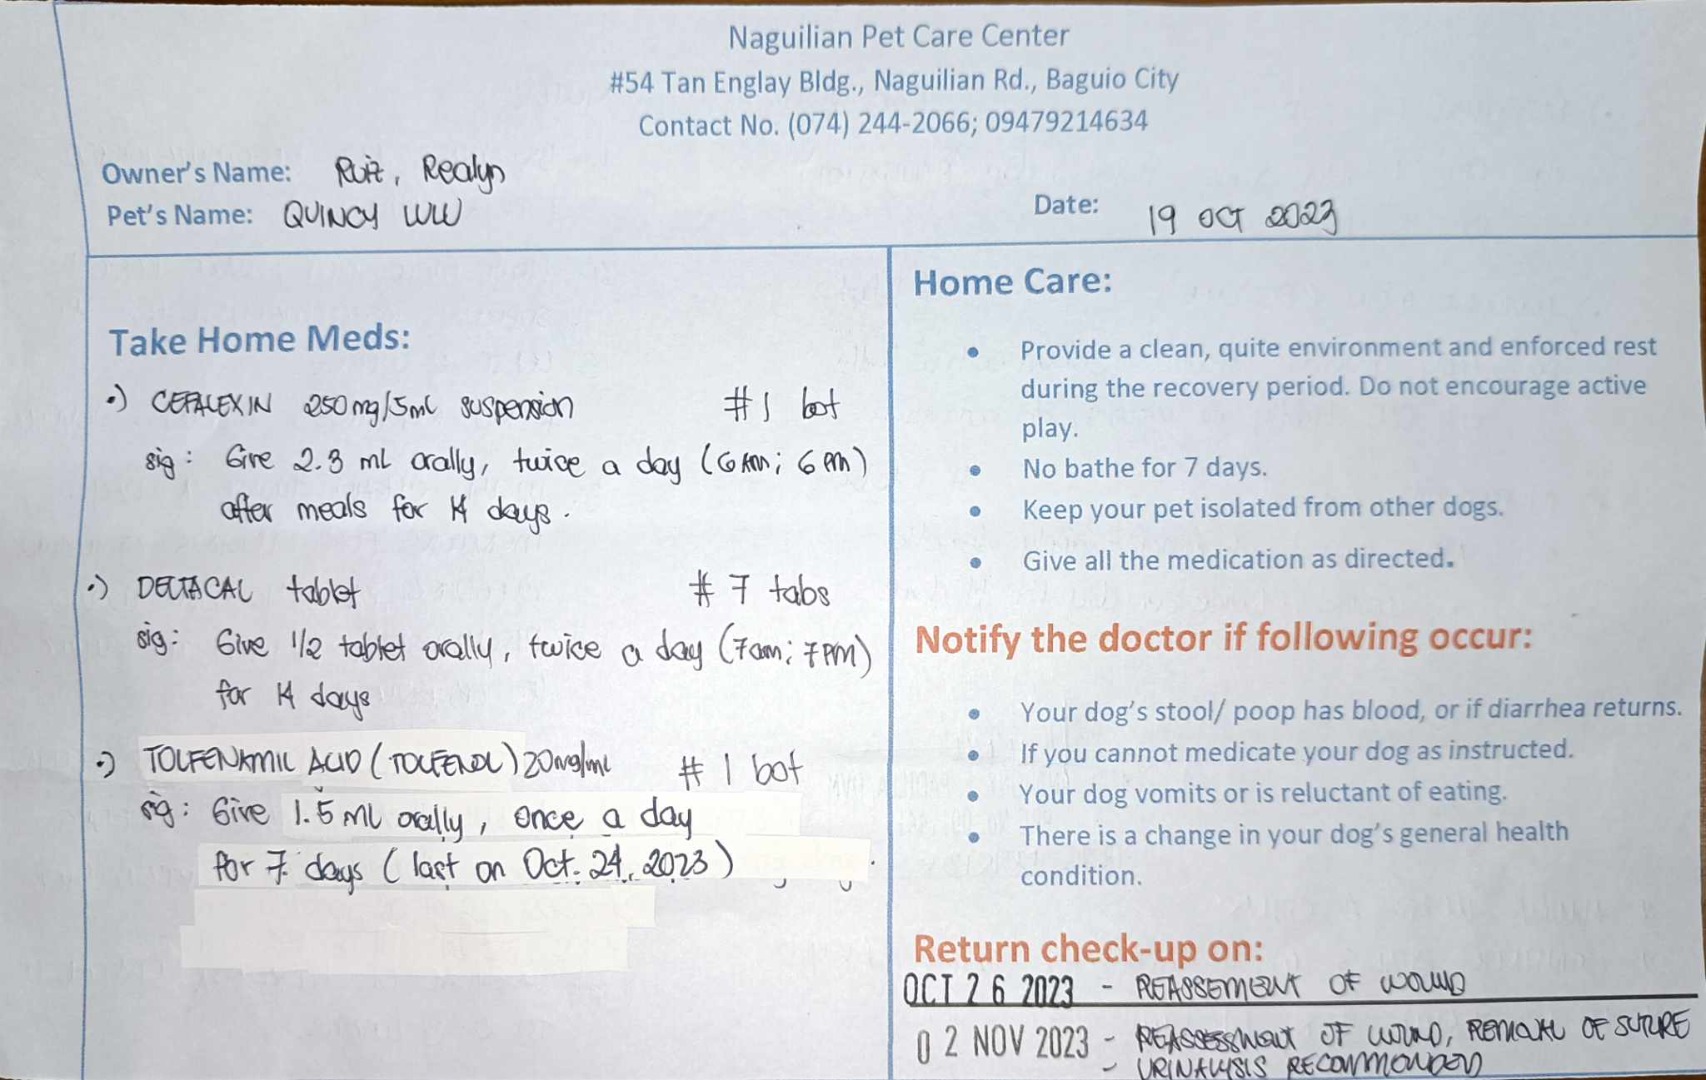 Naguilian Pet Care Center
#54 Tan Englay Bldg., Naguilian Rd., Baguio City
Contact No. (074) 244-2066; 09479214634
Owner's Name: Ruiz, Realyn
Pet's Name: QUINCY WW
Date: 19 OCT 2023
Take Home Meds:
•) CEFALEXIN 250mg/5ml suspension #1 bot
sig: Give 2.3 ml orally, twice a day (6AM; 6PM)
after meals for 14 days.
•) DELTACAL tablet # 7 tabs
sig: Give 1/2 tablet orally, twice a day (7am; 7PM)
for 14 days
•) TOLFENAMIC ACID (TOLFENOL) 20mg/ml # 1 bot
sig: Give 1.5 ml orally, once a day
for 7 days (last on Oct. 24, 2023)
Home Care:
• Provide a clean, quite environment and enforced rest
during the recovery period. Do not encourage active
play.
• No bathe for 7 days.
• Keep your pet isolated from other dogs.
• Give all the medication as directed.
Notify the doctor if following occur:
• Your dog's stool/ poop has blood, or if diarrhea returns.
• If you cannot medicate your dog as instructed.
• Your dog vomits or is reluctant of eating.
• There is a change in your dog's general health
condition.
Return check-up on:
OCT 26 2023 - REASSEMENT OF WOUND
02 NOV 2023 - REASSESSMENT OF WOUND, REMOVAL OF SUTURE
- URINALYSIS RECOMMENDED